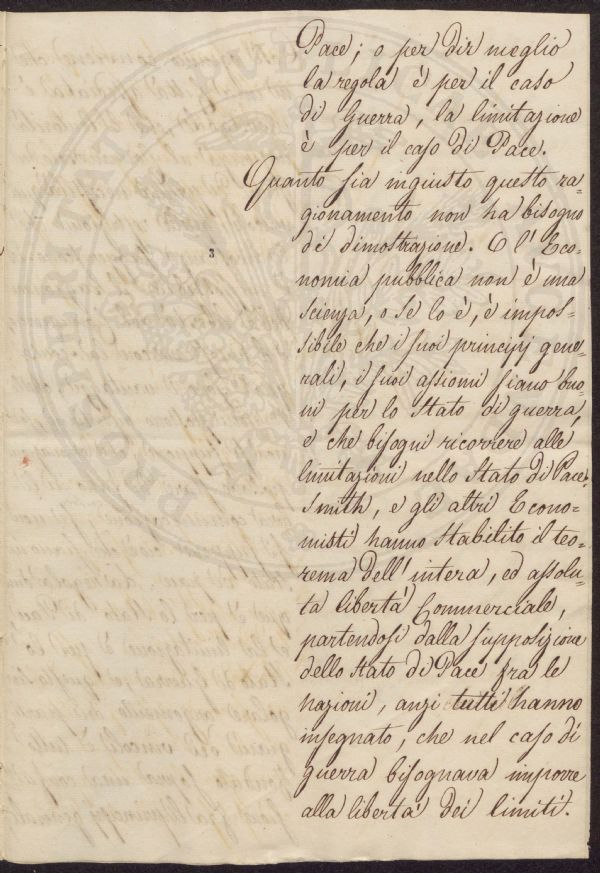 Pace; o per dir meglio
la regola è per il caso
di Guerra, la limitazione
è per il caso di Pace.
Quanto sia ingiusto questo ra=
gionamento non ha bisogno
di dimostrazione. O l'Eco=
nomia pubblica non è una
scienza, o se lo è, è impos=
sibile che i suoi principj gene=
rali, i suoi assiomi siano buo=
ni per lo Stato di guerra,
e che bisogni ricorrere alle
limitazioni nello Stato di Pace.
Smith, e gli altri Econo=
misti hanno stabilito il teo=
rema dell'intera, ed assolu=
ta libertà Commerciale,
partendosi dalla supposizione
dello Stato di Pace fra le
nazioni, anzi tutti hanno
insegnato, che nel caso di
guerra bisognava imporre
alla libertà dei limiti.
3